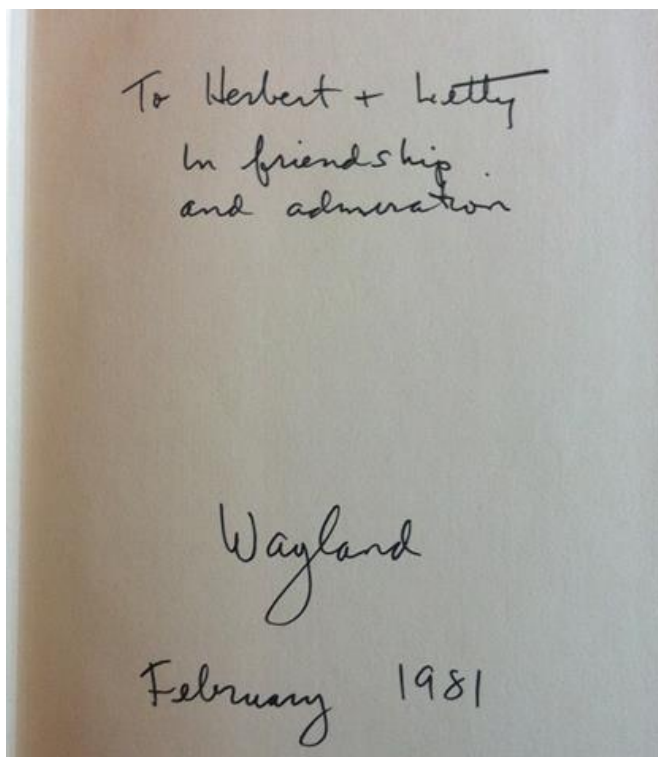 To Herbert + Letty
In friendship
and admiration
Wayland
February 1981